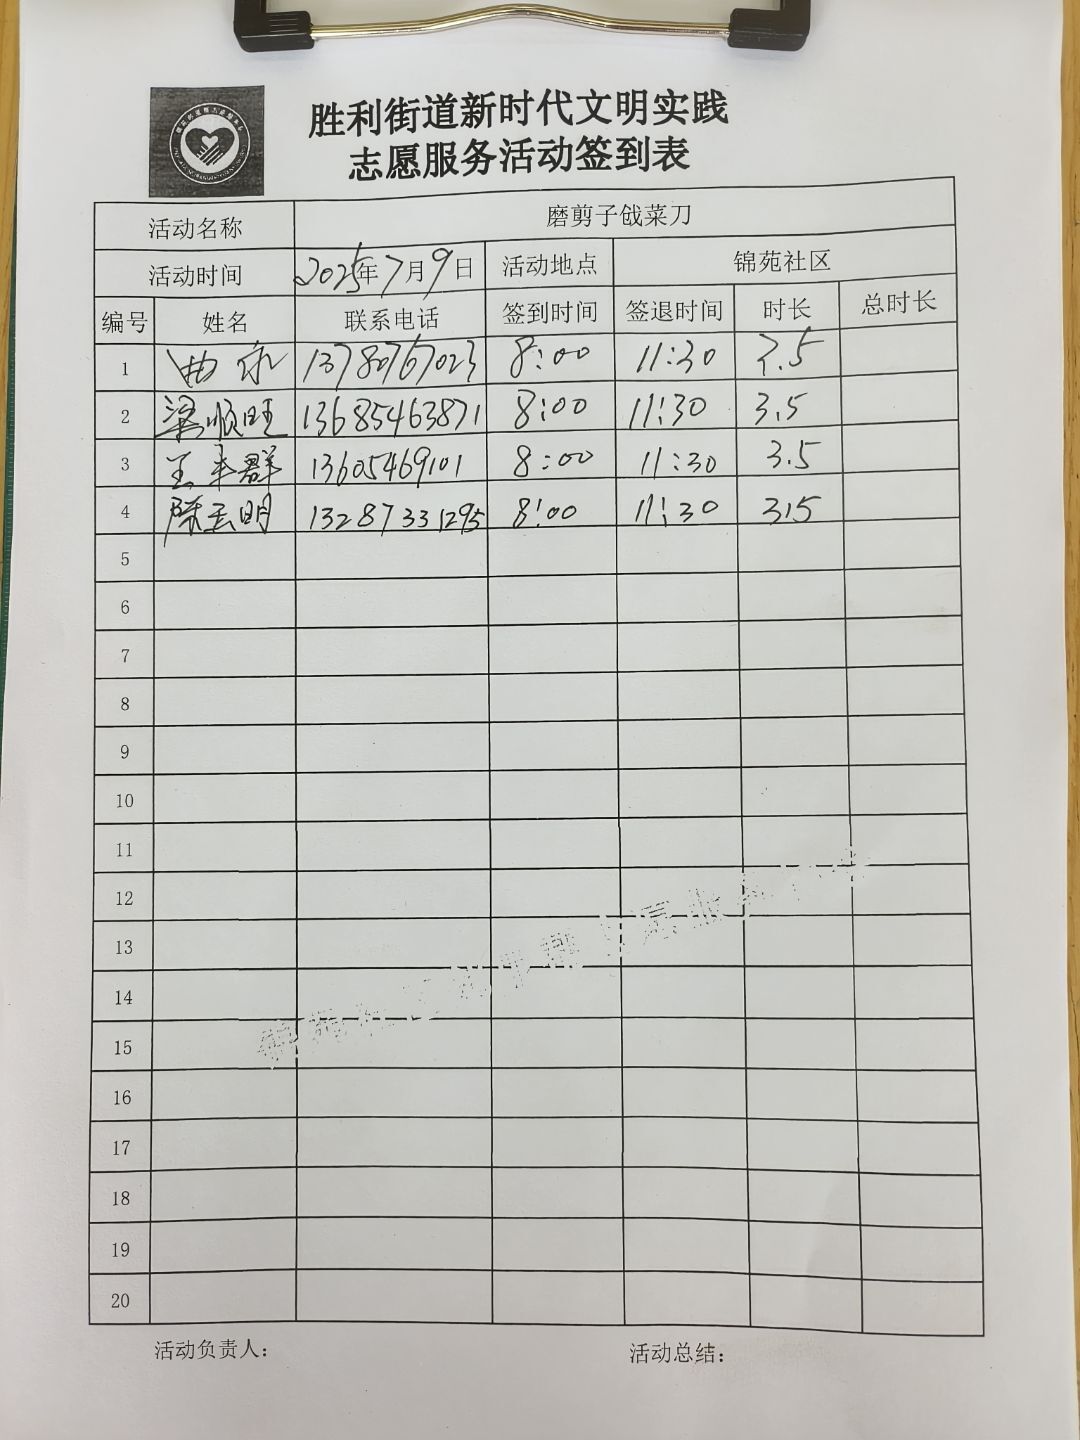 胜利街道新时代文明实践
志愿服务活动签到表
活动名称 磨剪子戗菜刀
活动时间 2025年7月9日 活动地点 锦苑社区
编号 姓名 联系电话 签到时间 签退时间 时长 总时长
1 曲 13780767023 8:00 11:30 3.5
2 梁顺旺 13685463871 8:00 11:30 3.5
3 王 群 13605469101 8:00 11:30 3.5
4 陈玉明 13287331295 8:00 11:30 3.5
5
6
7
8
9
10
11
12
13
14
15
16
17
18
19
20
活动负责人: 活动总结: